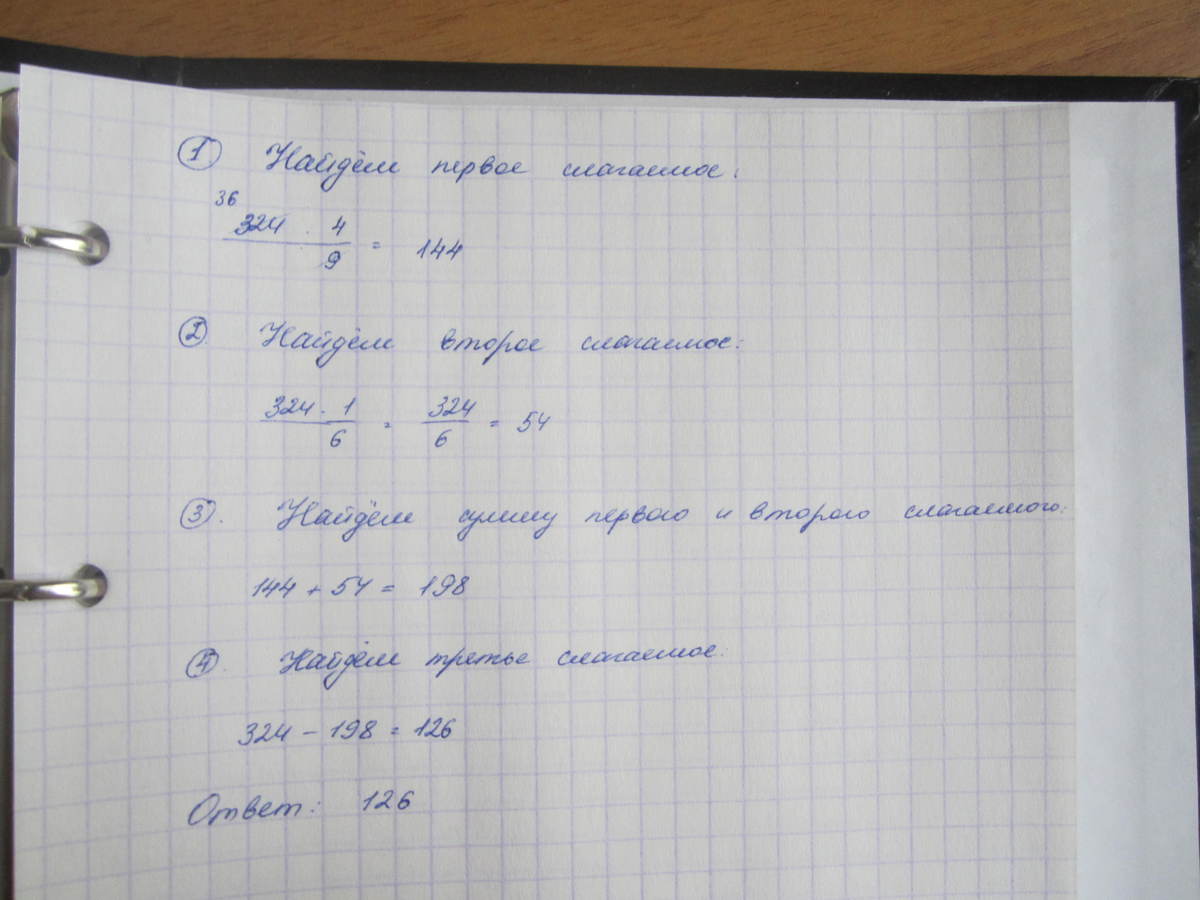 ① Найдём первое слагаемое.
36
324 · 4
9
= 144
② Найдём второе слагаемое:
324 · 1
6
= 324
6
= 54
③. Найдём сумму первого и второго слагаемого:
144 + 54 = 198
④. Найдём третье слагаемое:
324 - 198 = 126
Ответ: 126